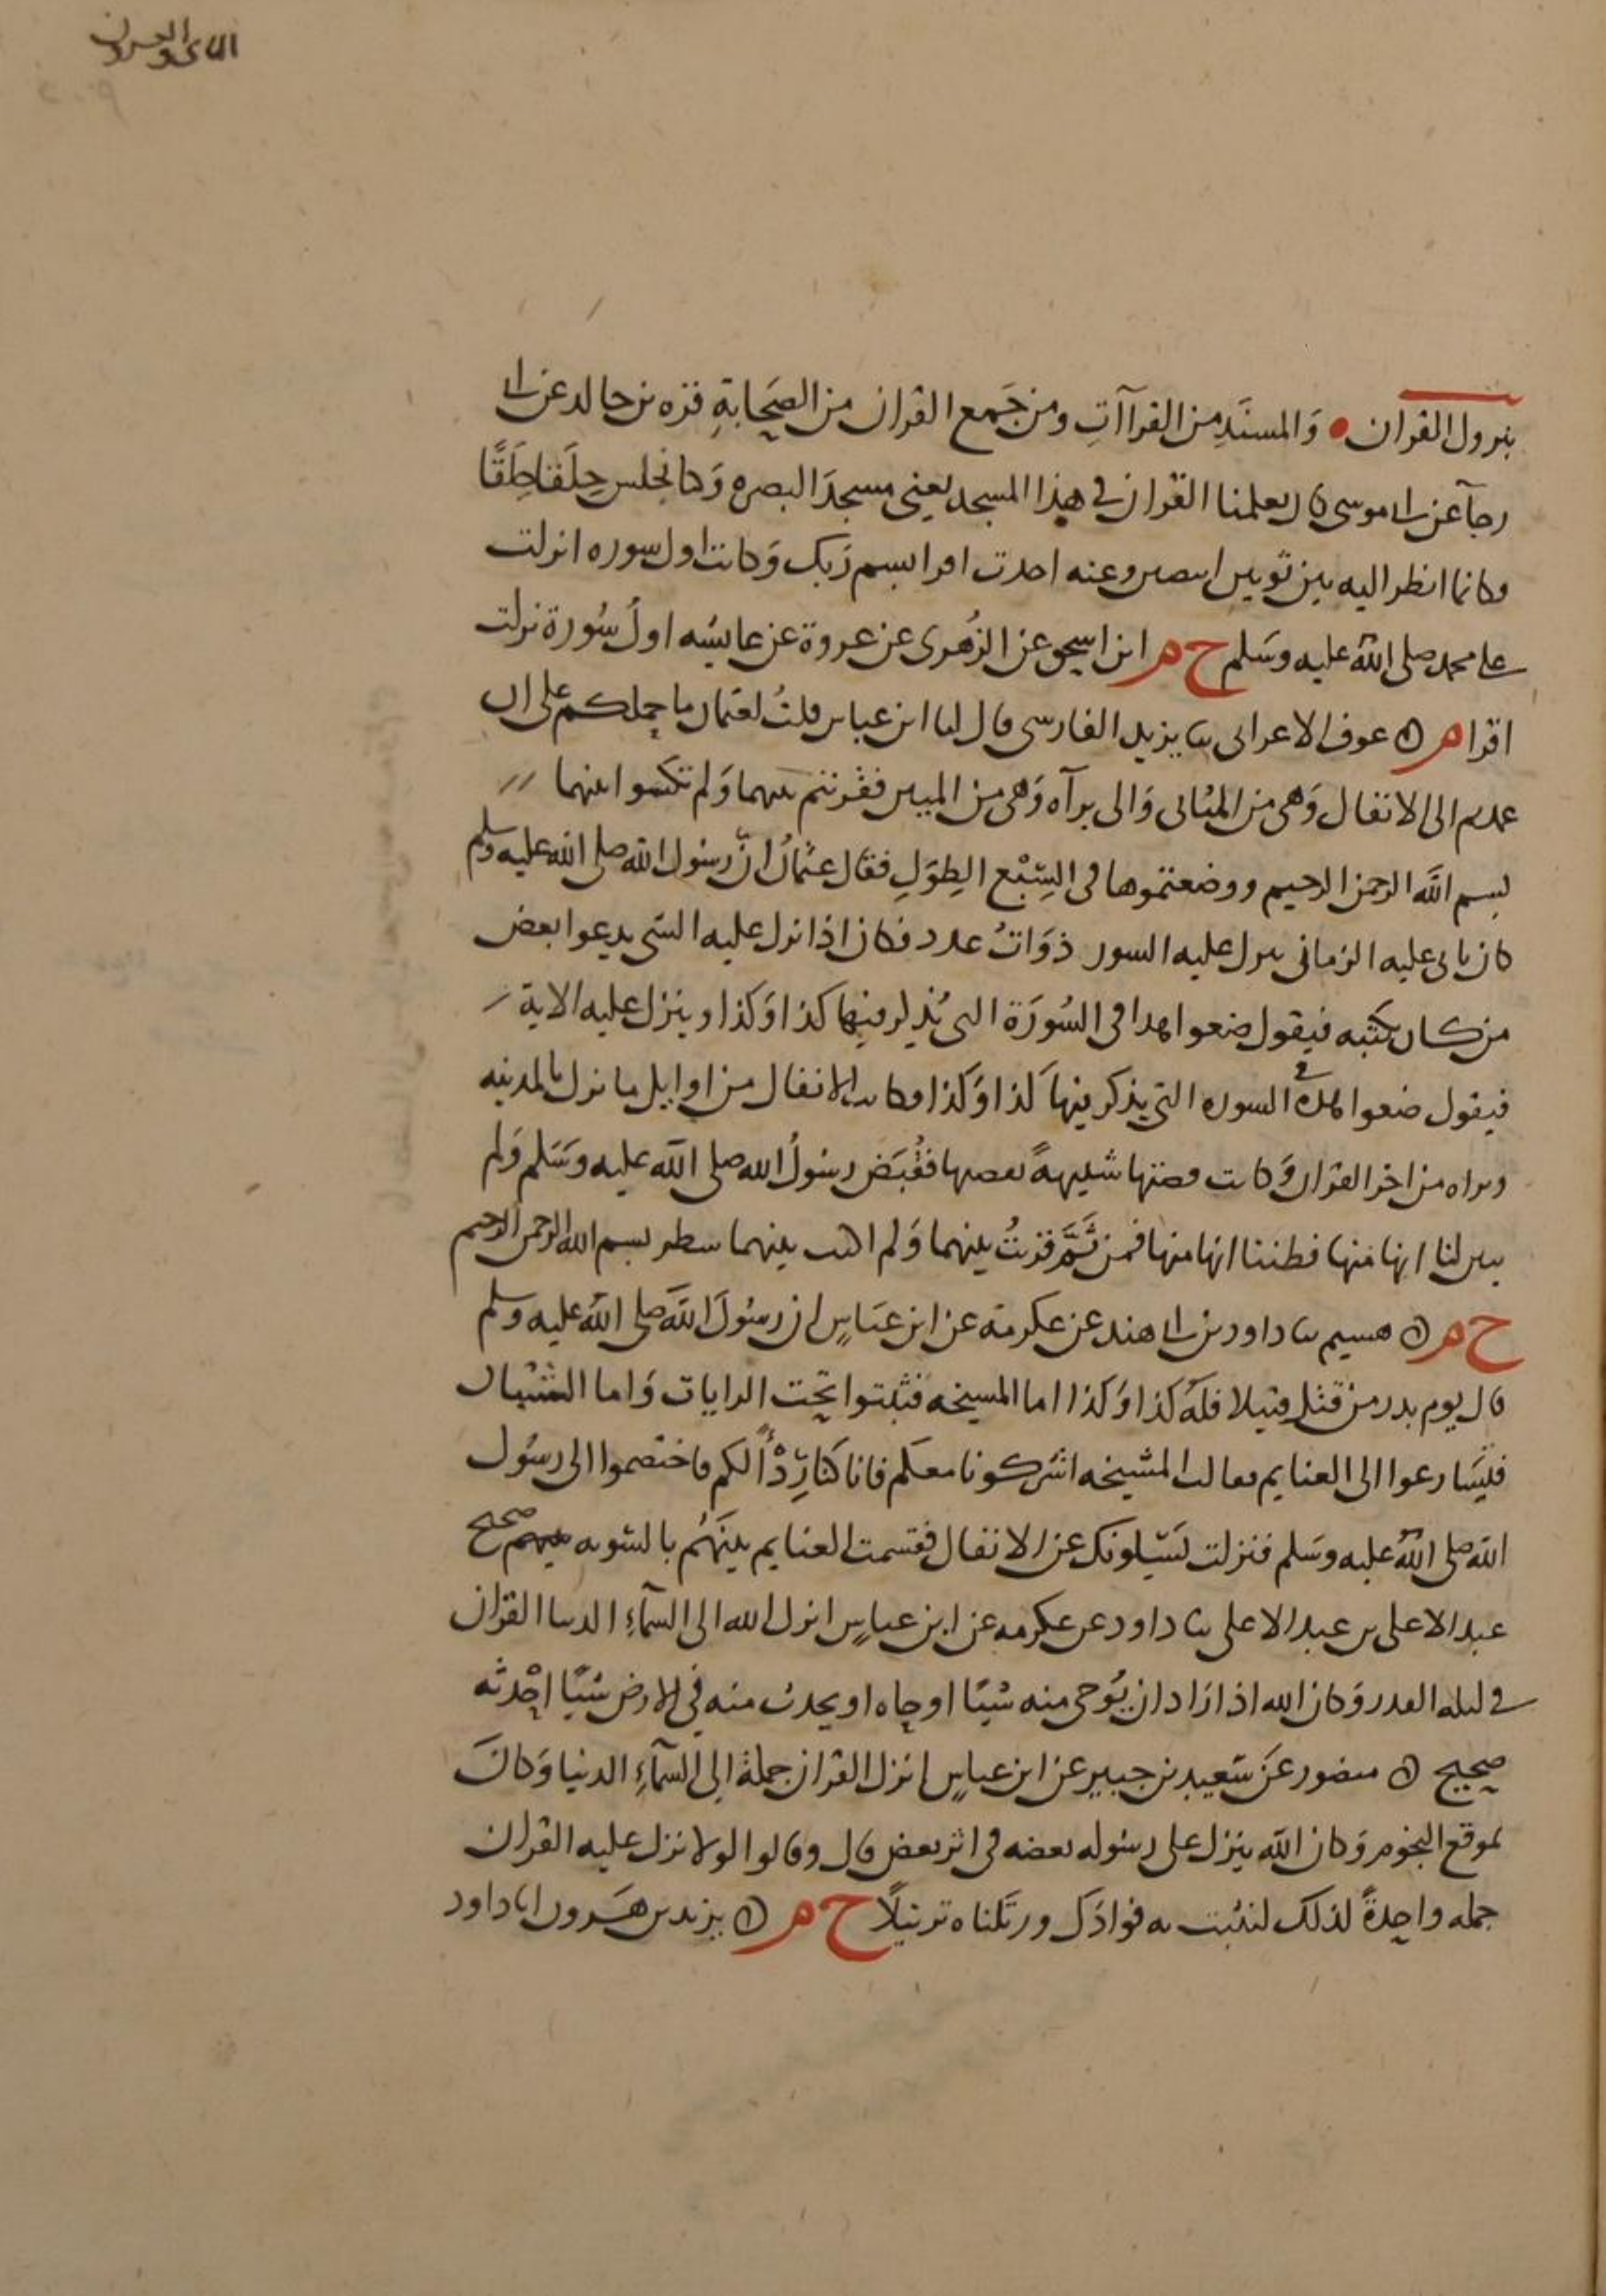 الثاني والعشرون
٢٠٩
نزول القران • وَالمسنَدِ من القراآتِ ومن جَمع القران من الصَحابةِ قره بن خالد عن ابي
رجآ عن ابي موسى كان يعلمنا القران في هذا المسجد يعني مسجدَ البصره وَكنا نجلس حِلَقا حِلَقًا
وكانما انظر اليه بين ثوبين ابيضين وعنه اخذت اقرا بسم رَبك وَكانت اول سوره انزلت
على محمد صلى الله عليه وسَلم خ م ابن اسحق عن الزُهرى عن عروة عن عايشه اولُ سُورة نزلت
اقرا م ه عوف الاعرابى ثنا يزيد الفارسى قال لنا ابن عباس قلتُ لعثمان ما حملكم على ان
عمدتم الى الانفال وَهى من المثانى وَالى برآه وَهى من المبين فقرنتم بينهما وَلم تكتبوا بينهما
بسم الله الرحمن الرحيم ووضعتموها فى السَبْع الطِوَلِ فقال عثمانُ انّ رسُول الله صلى الله عليه وسلم
كان ياتى عليه الزمانُ ينزل عليه السور ذوَاتُ عدد فكان اذا نزل عليه الشى يدعوا بعض
من كان يكتبه فيقول ضعوا هذا فى السُورَة التى يُذكر فيها كذا وَكذا وينزل عليه الاية
فيقول ضعوا هذه في السوره التي يذكر فيها كذا وَكذا وكانت الانفال من اوايل ما نزل بالمدينه
وبراه من اخر القران وَكانت قصتها شبيهةً بقصها فقُبَض رسُولُ الله صلى الله عليه وسَلم وَلم
يبين لنا انها منها فظننا انها منها فمن ثَمَّ قرنتُ بينهما وَلم اكتب بينهما سطر بسم الله الرحمن الرحيم
خ م ه هشيم ثنا داود بن ابي هند عن عكرمة عن ابن عبَاسٍ ان رسُولَ الله صلى الله عليه وسلم
قال يوم بدر من قتل قتيلا فلَه كذا وَكذا اما المسيخه فثبتوا تحت الرايات وَاما الشبان
فليسَارعوا الى الغنايم فقالت المشيخه اشركونا معكم فانا كنا رِدْأً لكم فاختصموا الى رسُول
الله صلى الله عليه وسَلم فنزلت يَسْيلونك عن الانفال فقسمت الغنايم بينَهُم بالسَويه بينهم صحيح
عبد الاعلى بن عبد الاعلى ثنا داود عن عكرمه عن ابن عباسٍ انزل الله الى السمآءِ الدنيا القران
في ليله القدر وَكان الله اذا ارَاد ان يُوحى منه شيًا اوحاه او يحدث منه في الارض شيًا احْدثه
صحيح ه منصور عَن سَعيد بن جبير عن ابن عباسٍ انزل القران جملة الى السمآءِ الدنيا وَكانَ
بموقع النجوم وَكان الله ينزل على رسُوله بعضه فى اثر بعض قال وقالوا لولا نزل عليه القران
جمله واحِدةً لذلك لنثبت به فوادَك ورتَلناه ترتيلًا خ م ه يزيد بن هَرون انا داود